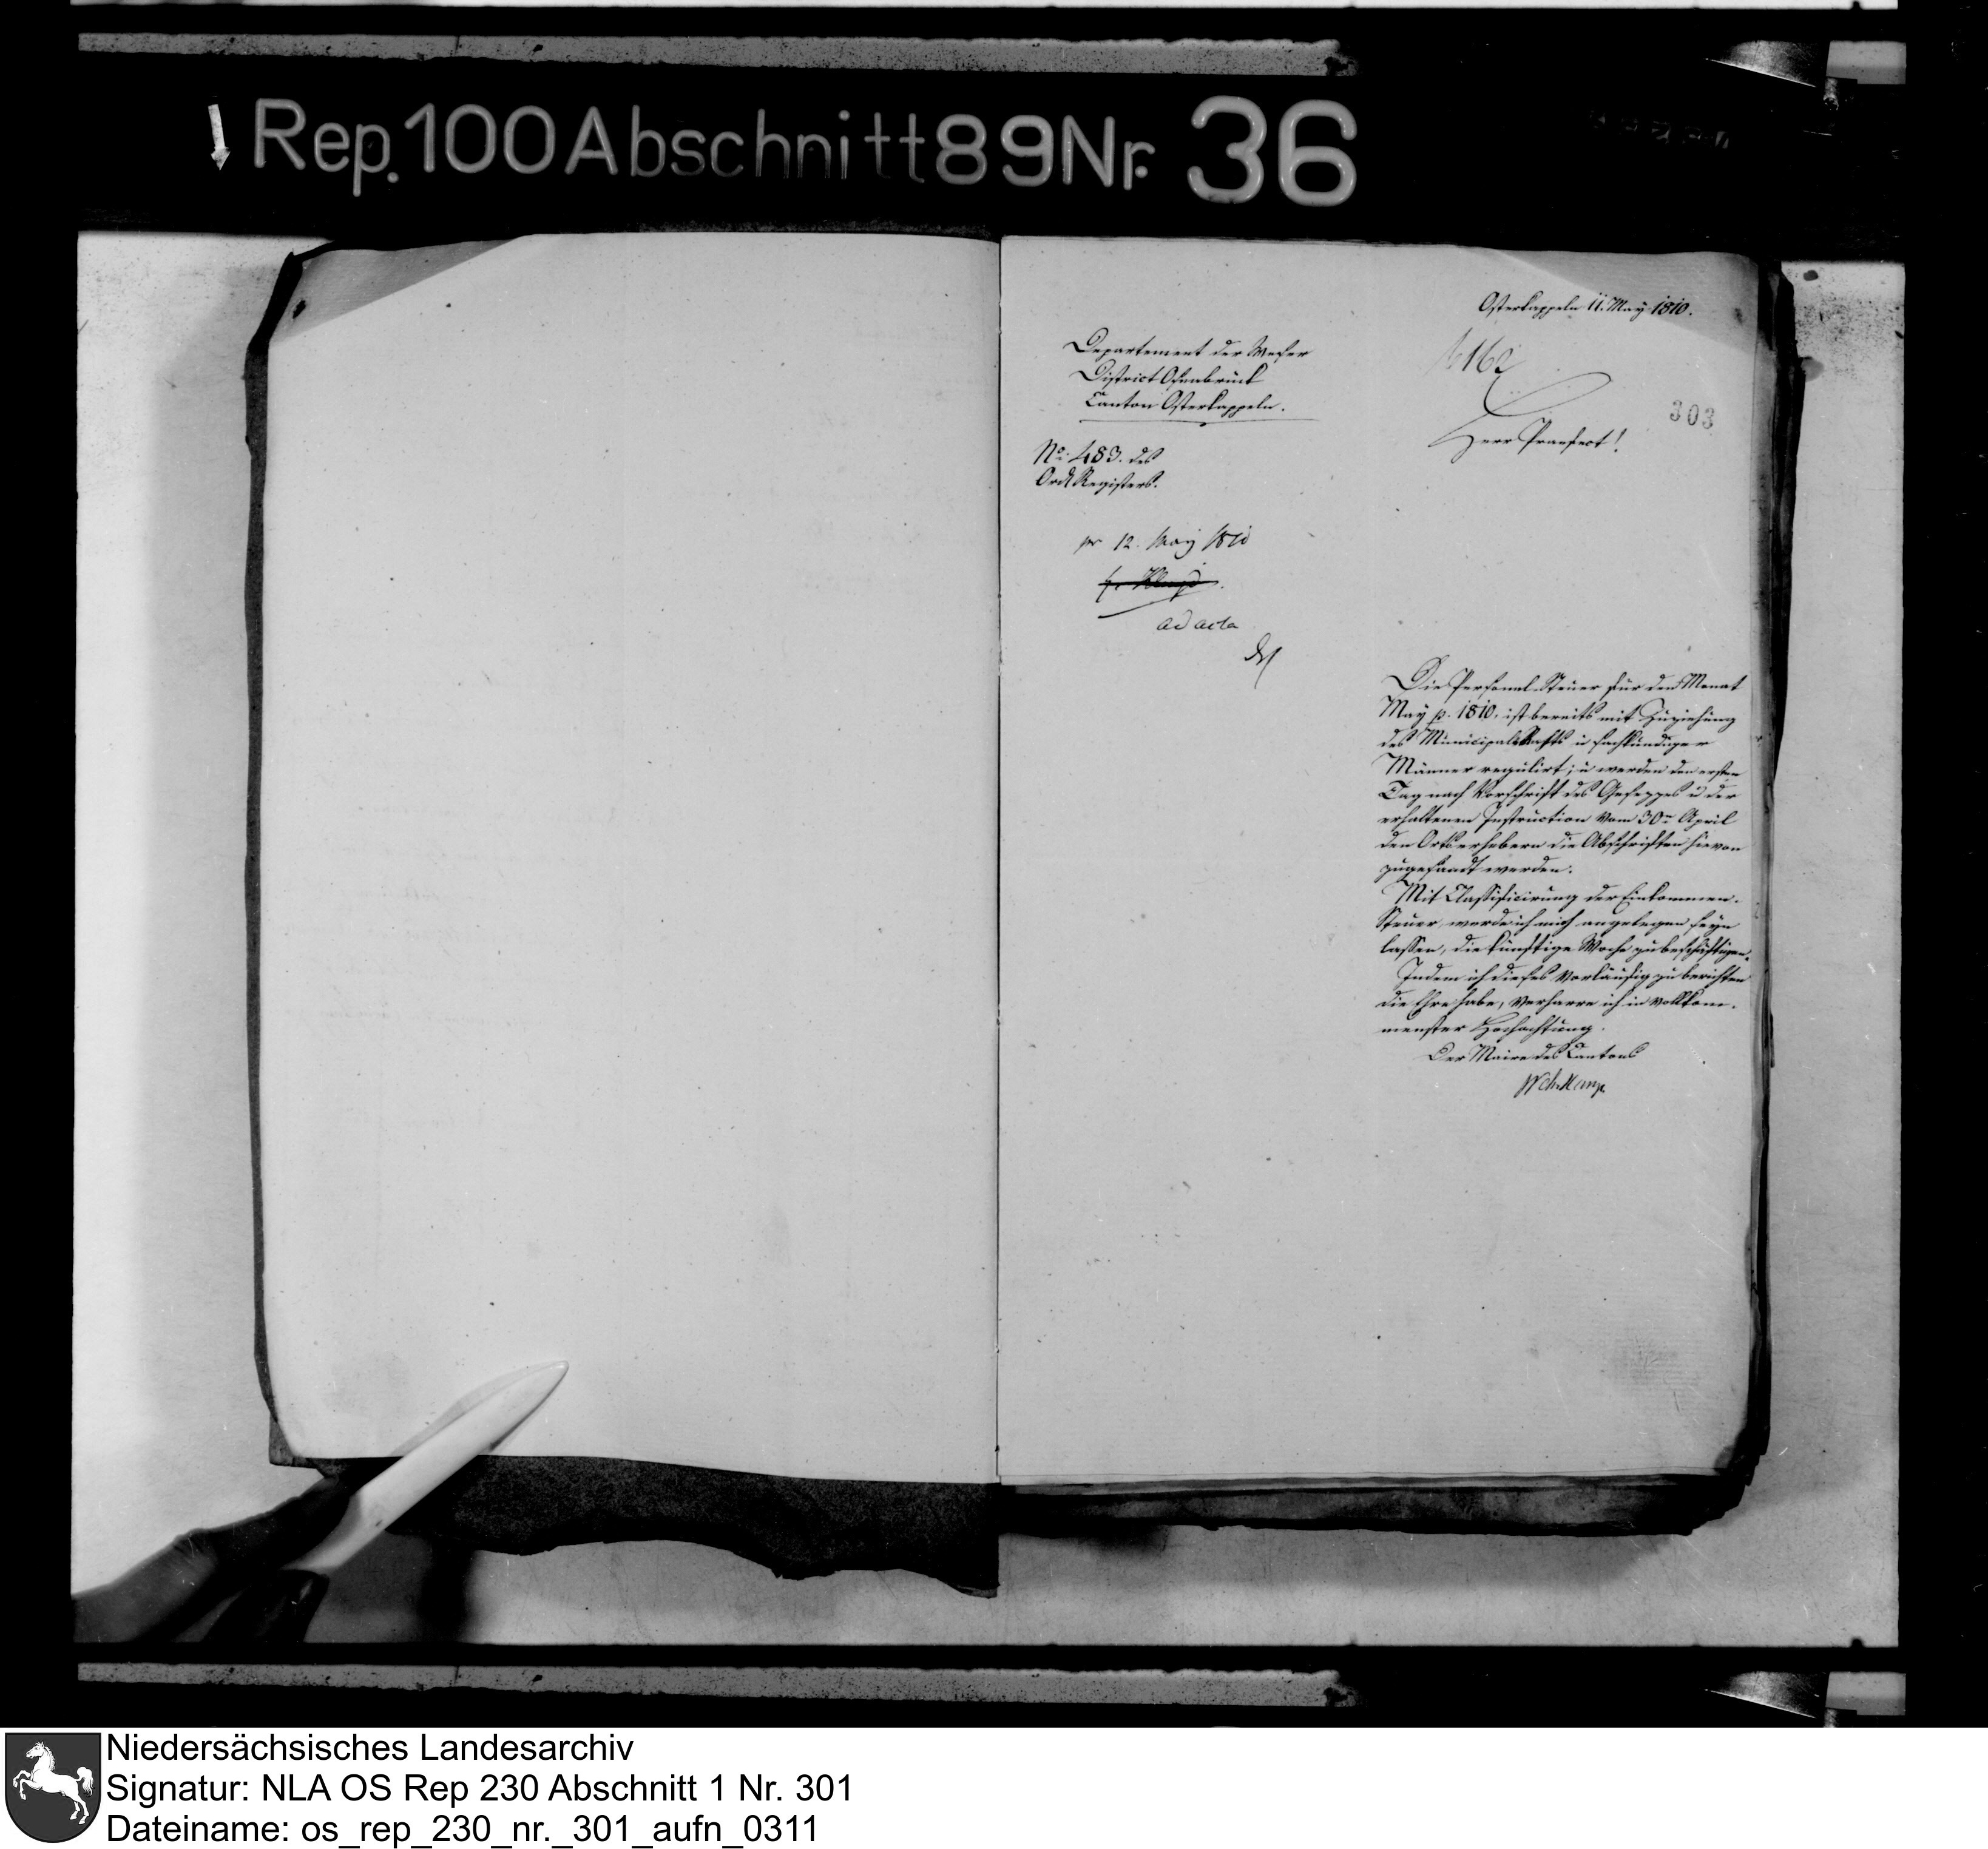 Rep. 100 Abschnitt 89 Nr. 36
Osterkappeln 11. May 1810.
Departement der Weser
District Osnabrück
Canton Osterkappeln.
303
Herr Praefect!
No: 483. des
Registers.
pr 12. May 1810
ad acta
Die Personal-Steuer für den Monat
May p. 1810. ist bereits mit Zuziehung
des Municipal-Raths u sachkundiger
Männer regulirt; u werden den ersten
Tag nach Vorschrift des Gesetzes u der
erhaltenen Instruction vom 30n April
den Ortserhebern die Abschriften hievon
zugesandt werden.
Mit Classificirung der Einkommen-
Steuer, werde ich mich angelegen seyn
lassen, die künftige Woche zu beschäftigen.
Indem ich dieses vorläufig zu berichten
die Ehre habe, verharre ich in vollkom-
menster Hochachtung.
Der Maire des Cantons
Niedersächsisches Landesarchiv
Signatur: NLA OS Rep 230 Abschnitt 1 Nr. 301
Dateiname: os_rep_230_nr._301_aufn_0311